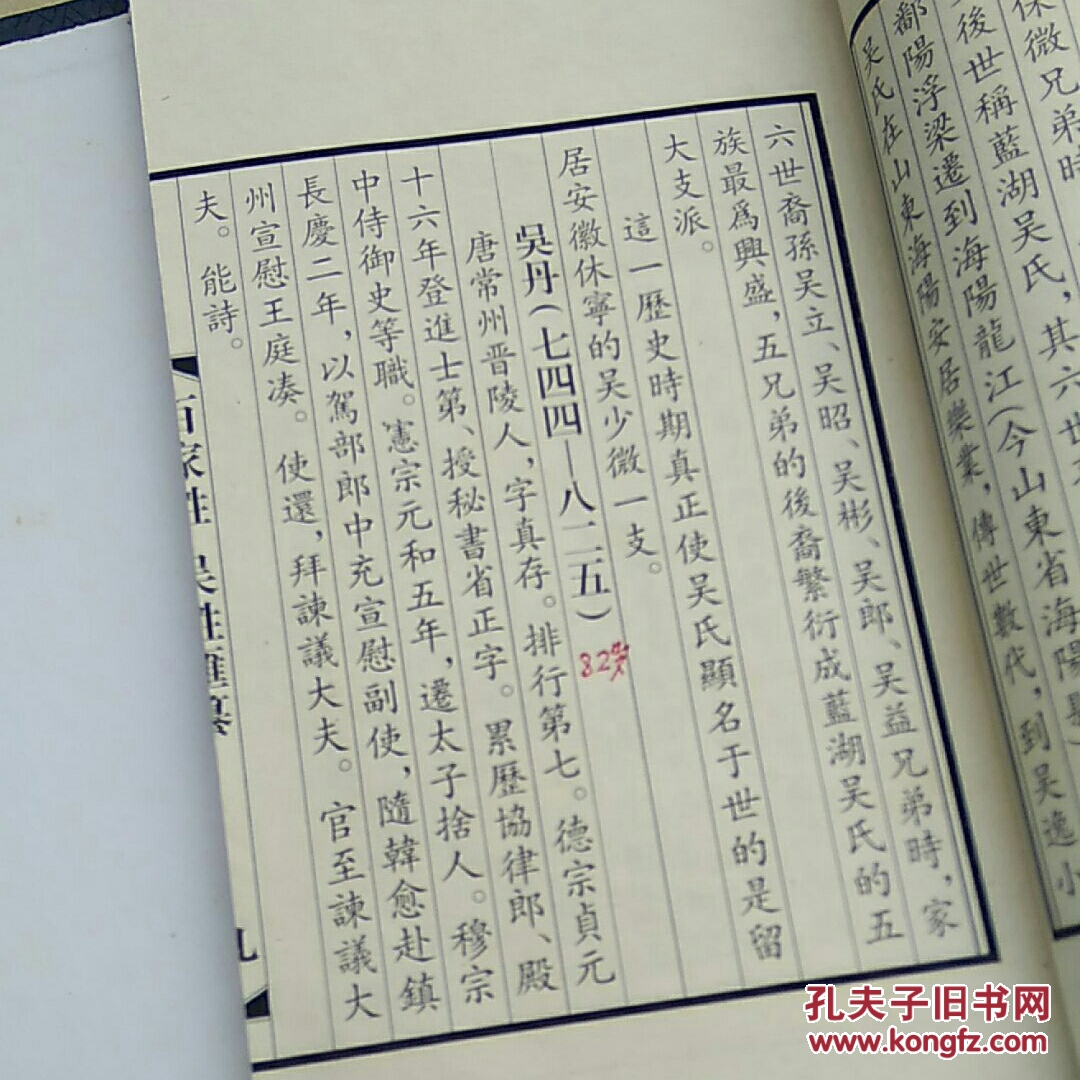 保微兄弟時
後世稱藍湖吴氏，其六世
鄱陽浮梁遷到海陽龍江（今山東省海陽縣）
吴氏在山東海陽安居樂業，傳世數代，到吴逸小
六世裔孫吴立、吴昭、吴彬、吴郎、吴益兄弟時，家
族最爲興盛，五兄弟的後裔繁衍成藍湖吴氏的五
大支派。
這一歷史時期真正使吴氏顯名于世的是留
居安徽休寧的吴少微一支。
吳丹（七四四—八二五）
82岁
唐常州晋陵人，字真存。排行第七。德宗貞元
十六年登進士第、授秘書省正字。累歷協律郎、殿
中侍御史等職。憲宗元和五年，遷太子捨人。穆宗
長慶二年，以駕部郎中充宣慰副使，隨韓愈赴鎮
州宣慰王庭凑。使還，拜諫議大夫。官至諫議大
夫。能詩。
百家姓 吴姓匯纂
九
孔夫子旧书网
www.kongfz.com